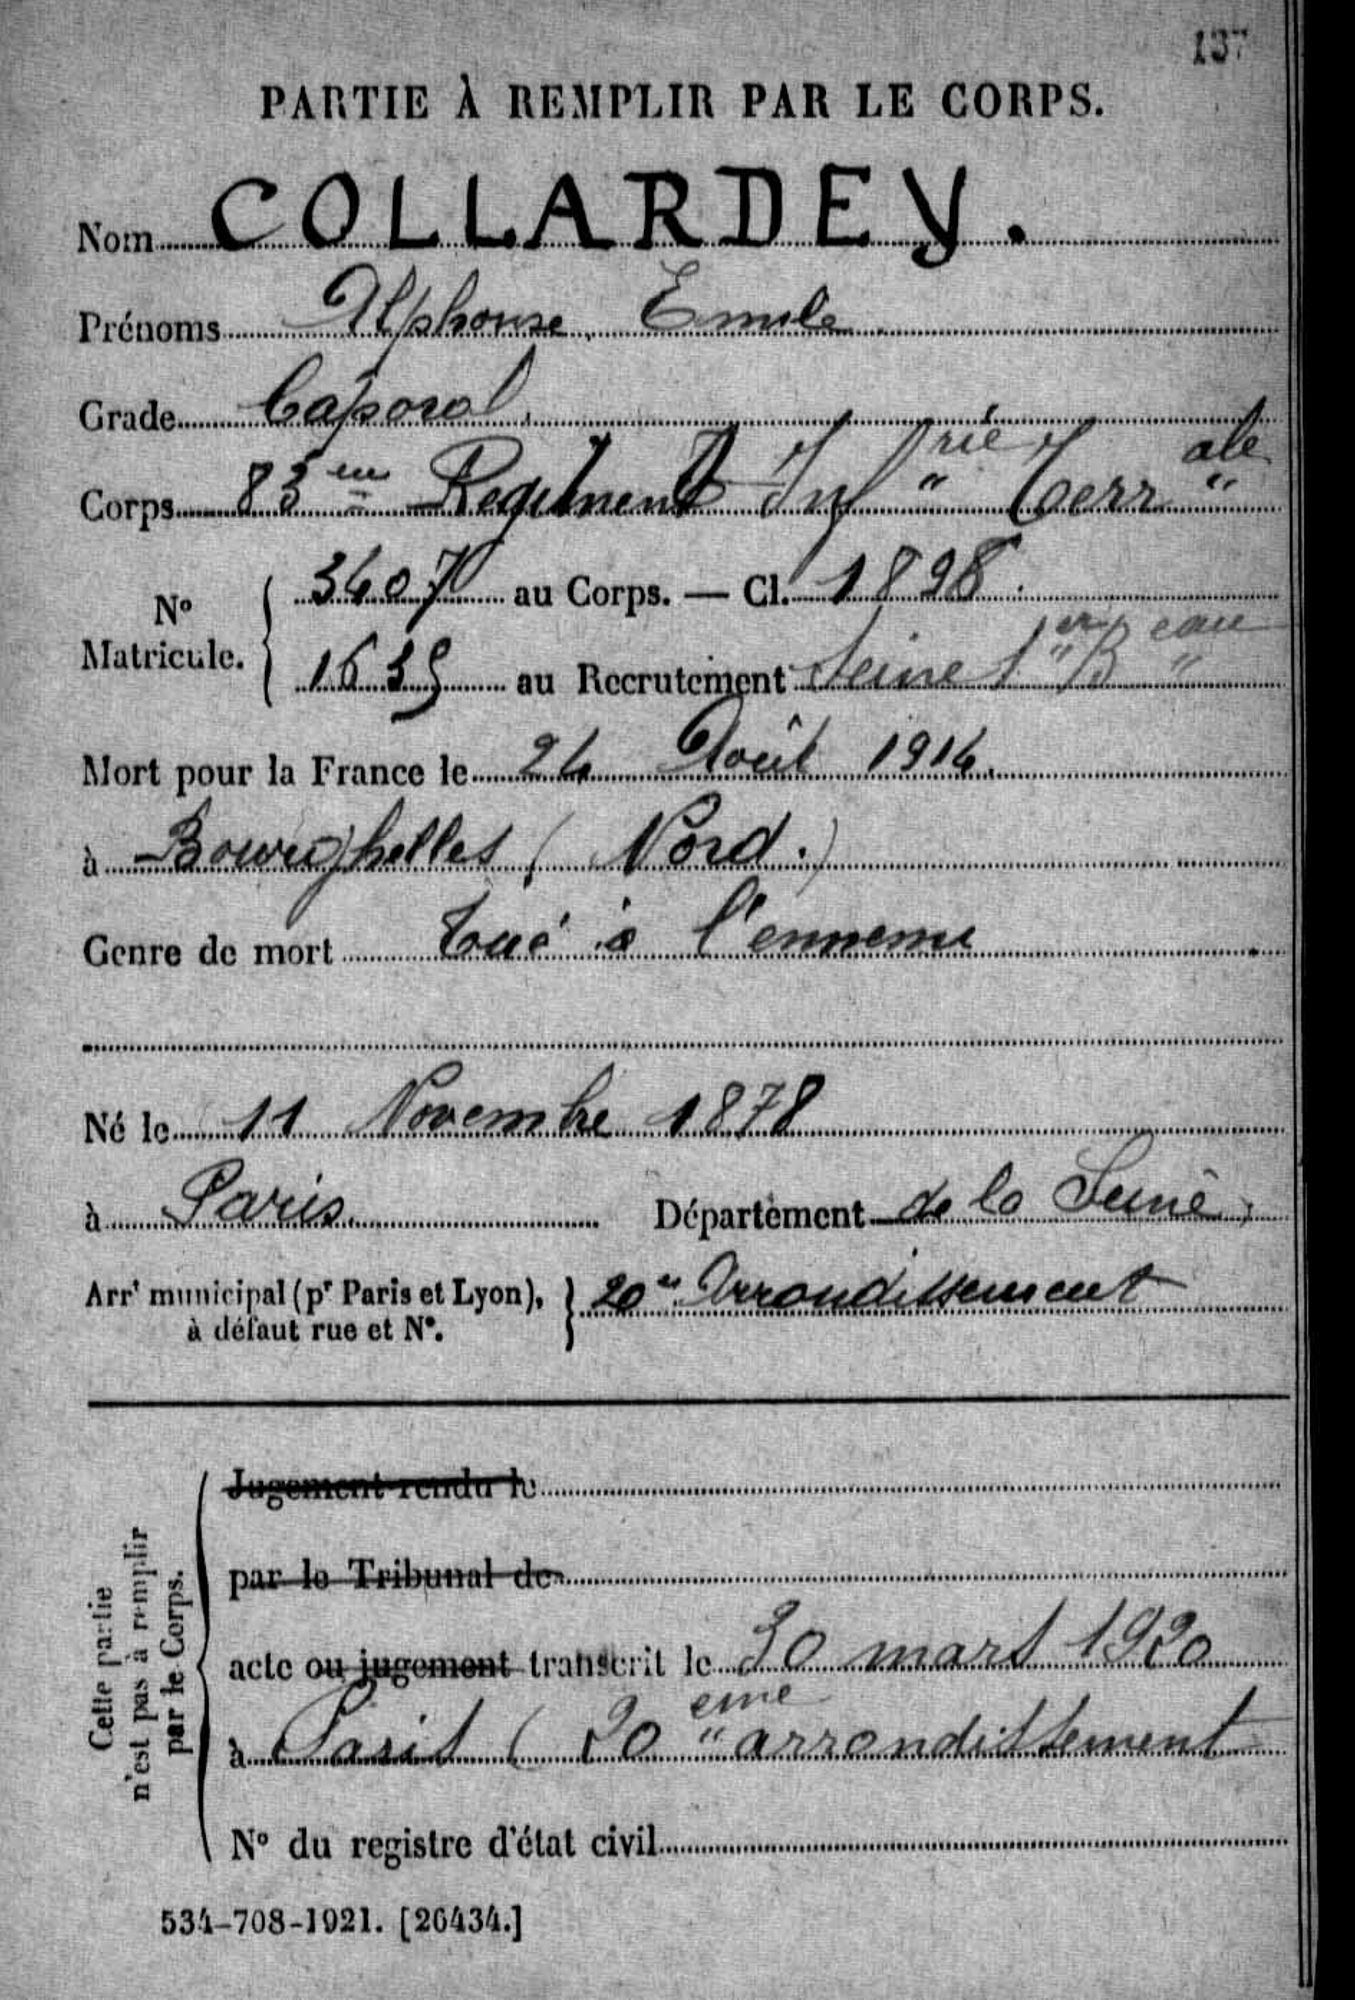 137
PARTIE À REMPLIR PAR LE CORPS.
Nom COLLARDEY.
Prénoms Alphonse, Emile
Grade Caporal.
Corps 83me Regiment Infrie Terrale
N° Matricule. { 3407 au Corps. — Cl. 1898.
1635 au Recrutement Seine 1er Beau
Mort pour la France le 24 Août 1914.
à Bourghelles (Nord.)
Genre de mort tué à l'ennemi
Né le 11 Novembre 1878
à Paris. Département de la Seine,
Arrt municipal (pr Paris et Lyon), à défaut rue et N°. } 20e Arrondissement
Cette partie n'est pas à remplir par le Corps.
Jugement rendu le
par le Tribunal de
acte ou jugement transcrit le 30 mars 1920
à Paris (20 eme arrondissement
N° du registre d'état civil
534-708-1921. [26434.]